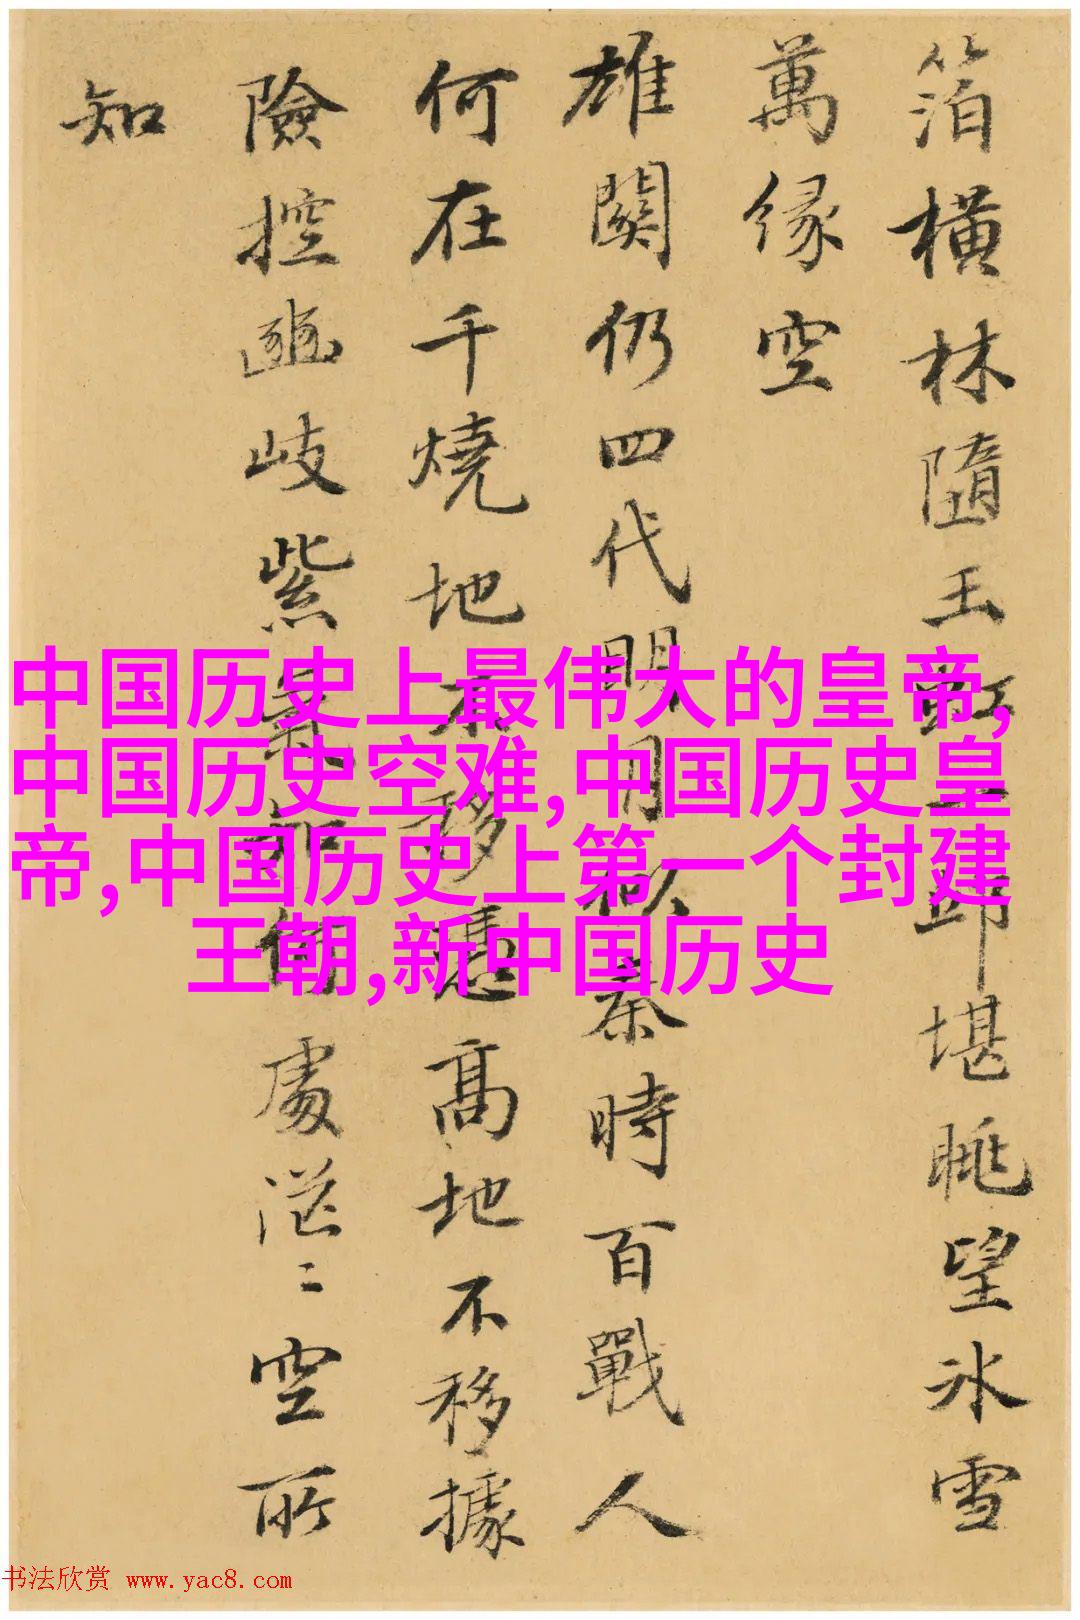 箔橫林隨玉虹
卭堪眺望冰雪
萬緣空
雄關仍四代明月
秦時百戰人
何在千燒地不移憑高地不移據
險控豳岐紫氣
何處茫〻空所
知
中国历史上最伟大的皇帝,
中国历史空难,中国历史皇
帝,中国历史上第一个封建
王朝,新中国历史
书法欣赏 www.yac8.com